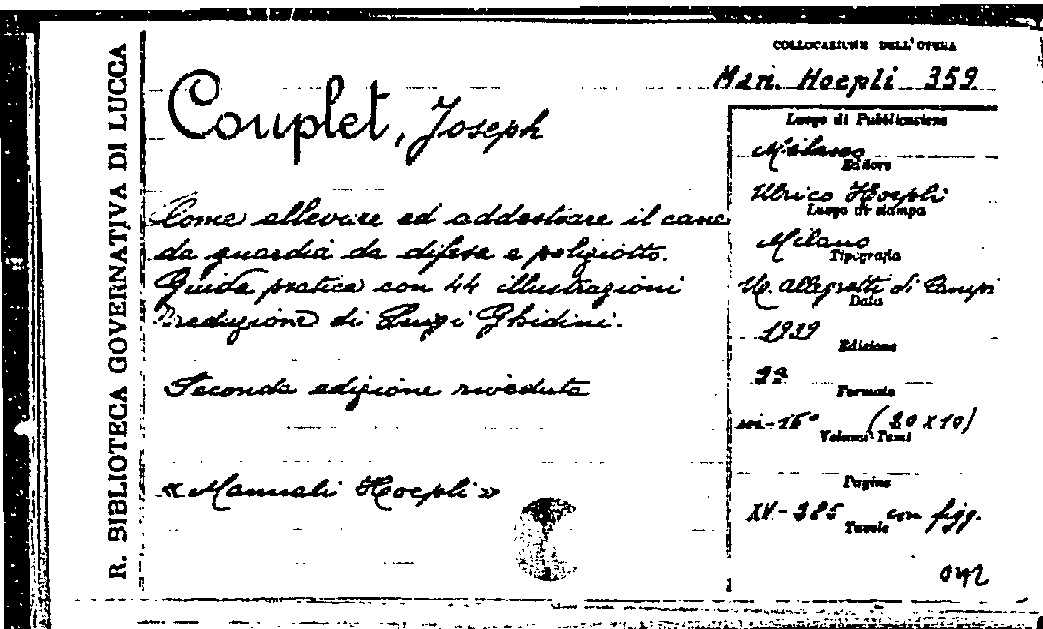 R. BIBLIOTECA GOVERNATIVA DI LUCCA
COLLOCAZIONE DELL'OPERA
Man. Hoepli 359
Couplet, Joseph
Come allevare ed addestrare il cane
da guardia da difesa e poliziotto.
Guida pratica con 44 illustrazioni
Traduzione di Luigi Ghidini.
Seconda edizione riveduta
«Manuali Hoepli»
Luogo di Pubblicazione
Milano
Editore
Ulrico Hoepli
Luogo di stampa
Milano
Tipografia
U. Allegretti di Campi
Data
1939
Edizione
2ª
Formato
in-16° (20x10)
Volumi Tomi
Pagine
XV-385 con figg.
Tavole